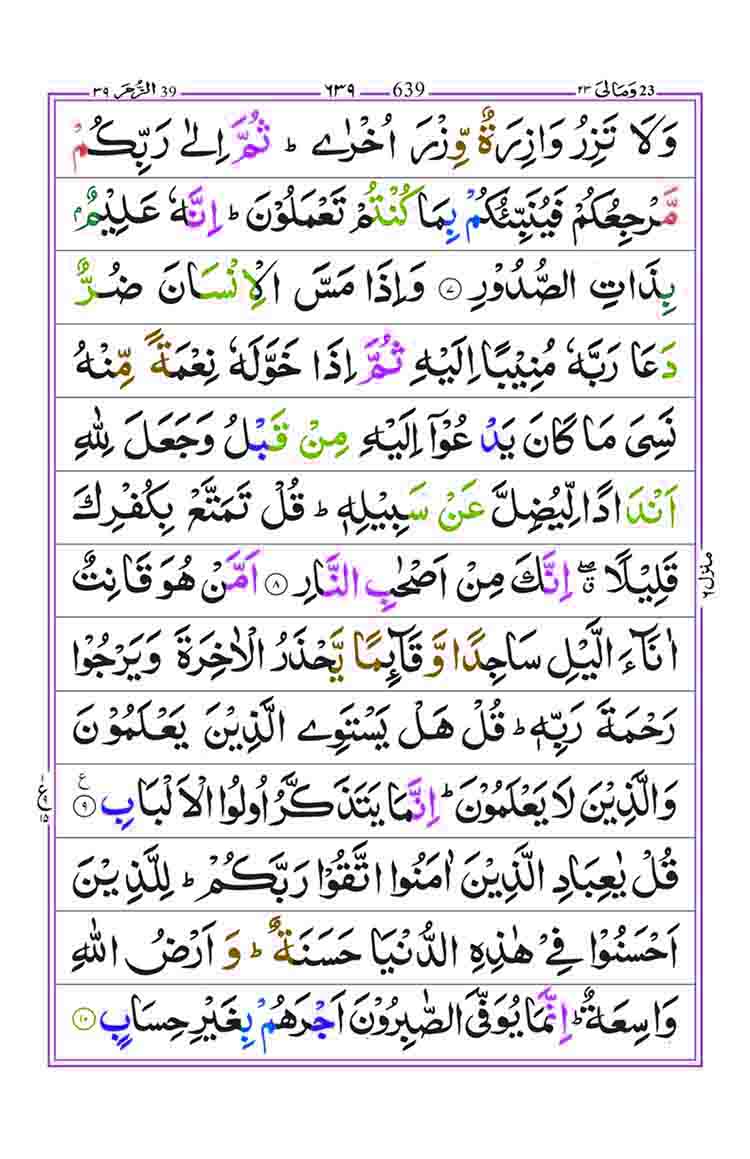 39 الزُّمَر ٣٩ ٦٣٩ 639 ٢٣ وَمَالِىَ 23
وَلَا تَزِرُ وَازِرَةٌ وِّزْرَ اُخْرٰے ؕ ثُمَّ اِلٰى رَبِّكُمْ
مَّرْجِعُكُمْ فَيُنَبِّئُكُمْ بِمَا كُنْتُمْ تَعْمَلُوْنَ ؕ اِنَّهٗ عَلِيْمٌۢ
بِذَاتِ الصُّدُوْرِ ۝٧ وَاِذَا مَسَّ الْاِنْسَانَ ضُرٌّ
دَعَا رَبَّهٗ مُنِيْبًا اِلَيْهِ ثُمَّ اِذَا خَوَّلَهٗ نِعْمَةً مِّنْهُ
نَسِىَ مَا كَانَ يَدْعُوْۤا اِلَيْهِ مِنْ قَبْلُ وَجَعَلَ لِلّٰهِ
اَنْدَادًا لِّيُضِلَّ عَنْ سَبِيْلِهٖ ؕ قُلْ تَمَتَّعْ بِكُفْرِكَ
قَلِيْلًا ۖ اِنَّكَ مِنْ اَصْحٰبِ النَّارِ ۝٨ اَمَّنْ هُوَ قَانِتٌ
اٰنَآءَ الَّيْلِ سَاجِدًا وَّقَآئِمًا يَّحْذَرُ الْاٰخِرَةَ وَيَرْجُوْا
رَحْمَةَ رَبِّهٖ ؕ قُلْ هَلْ يَسْتَوِے الَّذِيْنَ يَعْلَمُوْنَ
وَالَّذِيْنَ لَا يَعْلَمُوْنَ ؕ اِنَّمَا يَتَذَكَّرُ اُولُوا الْاَلْبَابِ ۝٩ ع
قُلْ يٰعِبَادِ الَّذِيْنَ اٰمَنُوا اتَّقُوْا رَبَّكُمْ ؕ لِلَّذِيْنَ
اَحْسَنُوْا فِىْ هٰذِهِ الدُّنْيَا حَسَنَةٌ ؕ وَ اَرْضُ اللّٰهِ
وَاسِعَةٌ ؕ اِنَّمَا يُوَفَّى الصّٰبِرُوْنَ اَجْرَهُمْ بِغَيْرِ حِسَابٍ ۝١٠
منزل ٦